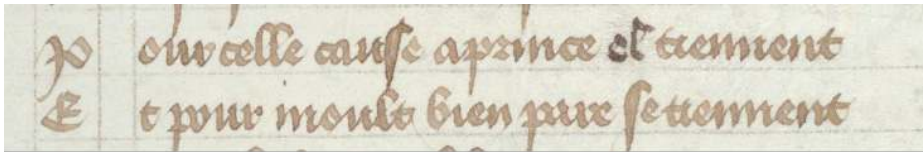 Pour celle cause a prince el tiennent
Et pour moult bien pare se tiennent